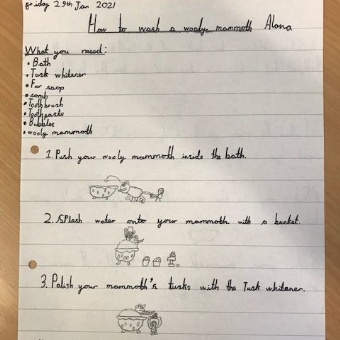 friday 29th Jan 2021
How to wash a wooly mammoth Alana
What you need:
• Bath
• Tusk whitener
• Fur soap
• comb
• Toothbrush
• Toothpaste
• Bubbles
• wooly mammoth
1. Push your wooly mammoth inside the bath.
2. Splash water onto your mammoth with a bucket.
3. Polish your mammoth's tusks with the Tusk whitener.